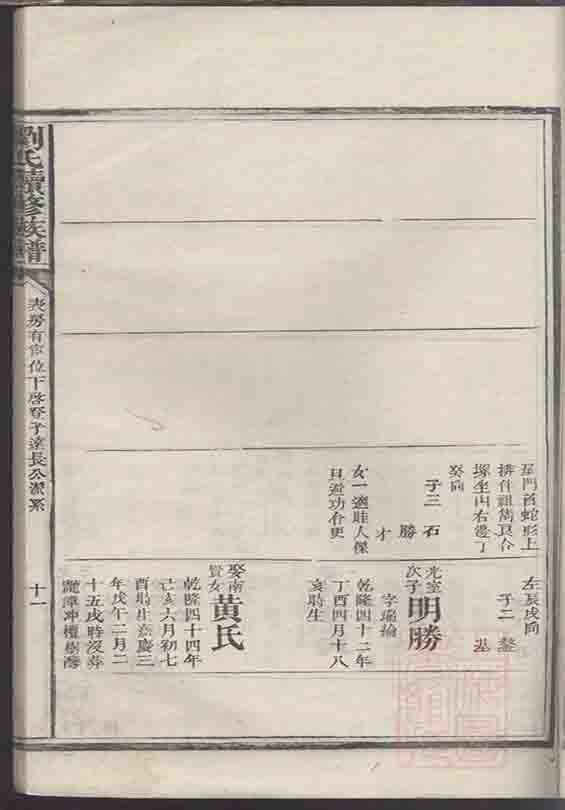 劉氏續修族譜
表房有官位下啓登子達長公濼系
十一
屋門首蛇形上
排什祖嵩良合
塚坐山右邊丁
癸向
子三 石
勝
才
女一適眭人傑
左辰戌向
子二 鏊
光室次子 明勝
字瑞掄
乾隆四十二年
丁酉四月十八
亥時生
娶南賢女 黃氏
乾隆四十四年
己亥六月初七
酉時生嘉慶三
年戊午二月二
十五戌時沒葬
麗潭沖檀樹灣